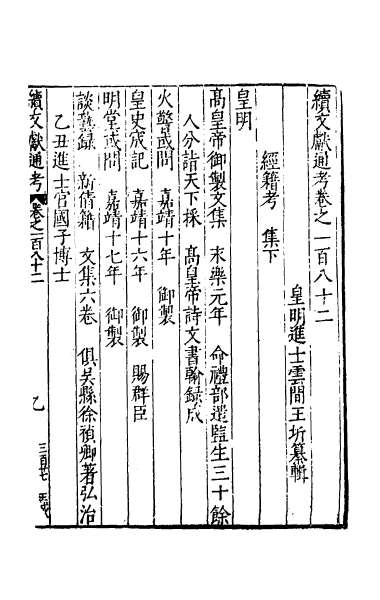 續文獻通考卷之一百八十二
皇明進士雲間王圻纂輯
經籍考　集下
皇明
高皇帝御製文集　永樂元年　命禮部選監生三十餘
人分詣天下採　高皇帝詩文書翰録成
火警或問　嘉靖十年　御製
皇史宬記　嘉靖十六年　御製　賜群臣
明堂或問　嘉靖十七年　御製
談藝録　新倩籍　文集六卷　俱吳縣徐禎卿著弘治
乙丑進士官國子博士
續文獻通考　卷之一百八十二　乙　三百七